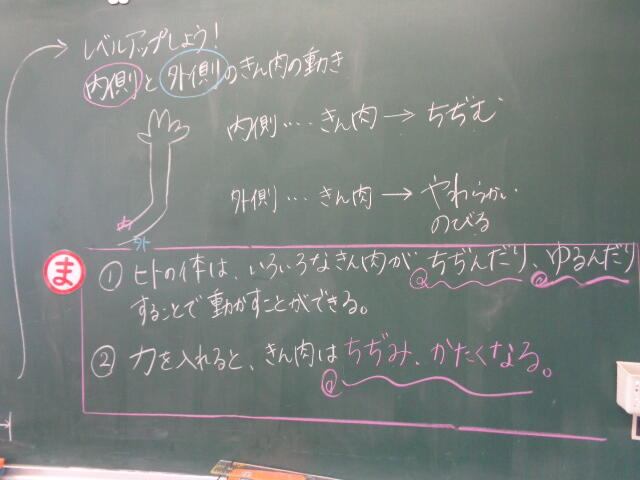 レベルアップしよう!
内側と外側のきん肉の動き
内側‥‥きん肉→ちぢむ
外側‥‥きん肉→やわらかい
のびる
内
外
ま
① ヒトの体は、いろいろなきん肉がちぢんだり、ゆるんだり
することで動かすことができる。
② 力を入れると、きん肉はちぢみ、かたくなる。